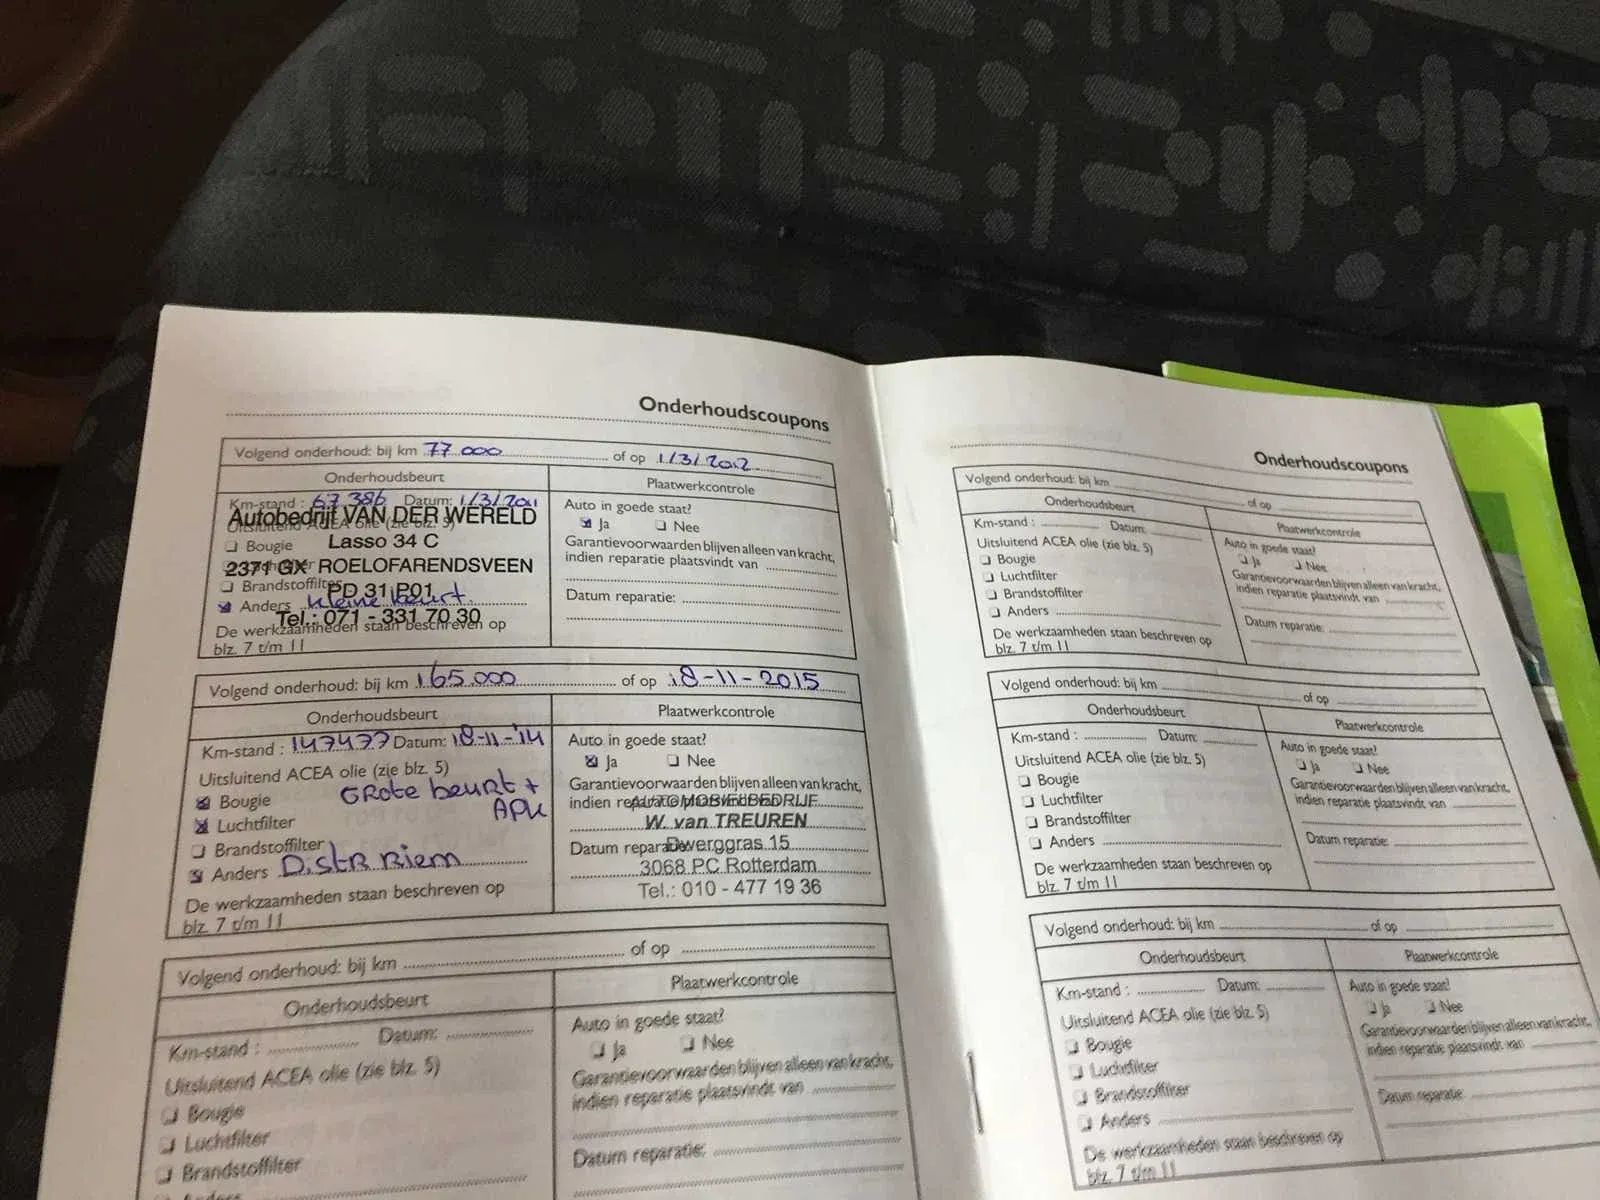 Onderhoudscoupons
Volgend onderhoud: bij km 77.000 of op 1/3/2012
Onderhoudsbeurt
Plaatwerkcontrole
Km-stand : 67386 Datum: 1/3/2011
Uitsluitend ACEA olie (zie blz. 5)
Autobedrijf VAN DER WERELD
Bougie
Lasso 34 C
2371 GX ROELOFARENDSVEEN
Brandstoffilter
PD 31 P01
Anders kleine beurt
Tel.: 071 - 331 70 30
De werkzaamheden staan beschreven op
blz. 7 t/m 11
Auto in goede staat?
Ja Nee
Garantievoorwaarden blijven alleen van kracht,
indien reparatie plaatsvindt van
Datum reparatie:
Volgend onderhoud: bij km 165.000 of op 18-11-2015
Onderhoudsbeurt
Plaatwerkcontrole
Km-stand : 147477 Datum: 18-11-'14
Uitsluitend ACEA olie (zie blz. 5)
Bougie GRote beuRt +
APK
Luchtfilter
Brandstoffilter
Anders D.stR Riem
De werkzaamheden staan beschreven op
blz. 7 t/m 11
Auto in goede staat?
Ja Nee
Garantievoorwaarden blijven alleen van kracht,
indien reparatie plaatsvindt van
AUTOMOBIELBEDRIJF
W. van TREUREN
Datum reparatie:
Dwerggras 15
3068 PC Rotterdam
Tel.: 010 - 477 19 36
Volgend onderhoud: bij km of op
Onderhoudsbeurt
Plaatwerkcontrole
Km-stand : Datum:
Uitsluitend ACEA olie (zie blz. 5)
Bougie
Luchtfilter
Brandstoffilter
Anders
Auto in goede staat?
Ja Nee
Garantievoorwaarden blijven alleen van kracht,
indien reparatie plaatsvindt van
Datum reparatie:
Onderhoudscoupons
Volgend onderhoud: bij km of op
Onderhoudsbeurt
Plaatwerkcontrole
Km-stand : Datum:
Uitsluitend ACEA olie (zie blz. 5)
Bougie
Luchtfilter
Brandstoffilter
Anders
De werkzaamheden staan beschreven op
blz. 7 t/m 11
Auto in goede staat?
Ja Nee
Garantievoorwaarden blijven alleen van kracht,
indien reparatie plaatsvindt van
Datum reparatie:
Volgend onderhoud: bij km of op
Onderhoudsbeurt
Plaatwerkcontrole
Km-stand : Datum:
Uitsluitend ACEA olie (zie blz. 5)
Bougie
Luchtfilter
Brandstoffilter
Anders
De werkzaamheden staan beschreven op
blz. 7 t/m 11
Auto in goede staat?
Ja Nee
Garantievoorwaarden blijven alleen van kracht,
indien reparatie plaatsvindt van
Datum reparatie:
Volgend onderhoud: bij km of op
Onderhoudsbeurt
Plaatwerkcontrole
Km-stand : Datum:
Uitsluitend ACEA olie (zie blz. 5)
Bougie
Luchtfilter
Brandstoffilter
Anders
De werkzaamheden staan beschreven op
blz. 7 t/m 11
Auto in goede staat?
Ja Nee
Garantievoorwaarden blijven alleen van kracht,
indien reparatie plaatsvindt van
Datum reparatie: